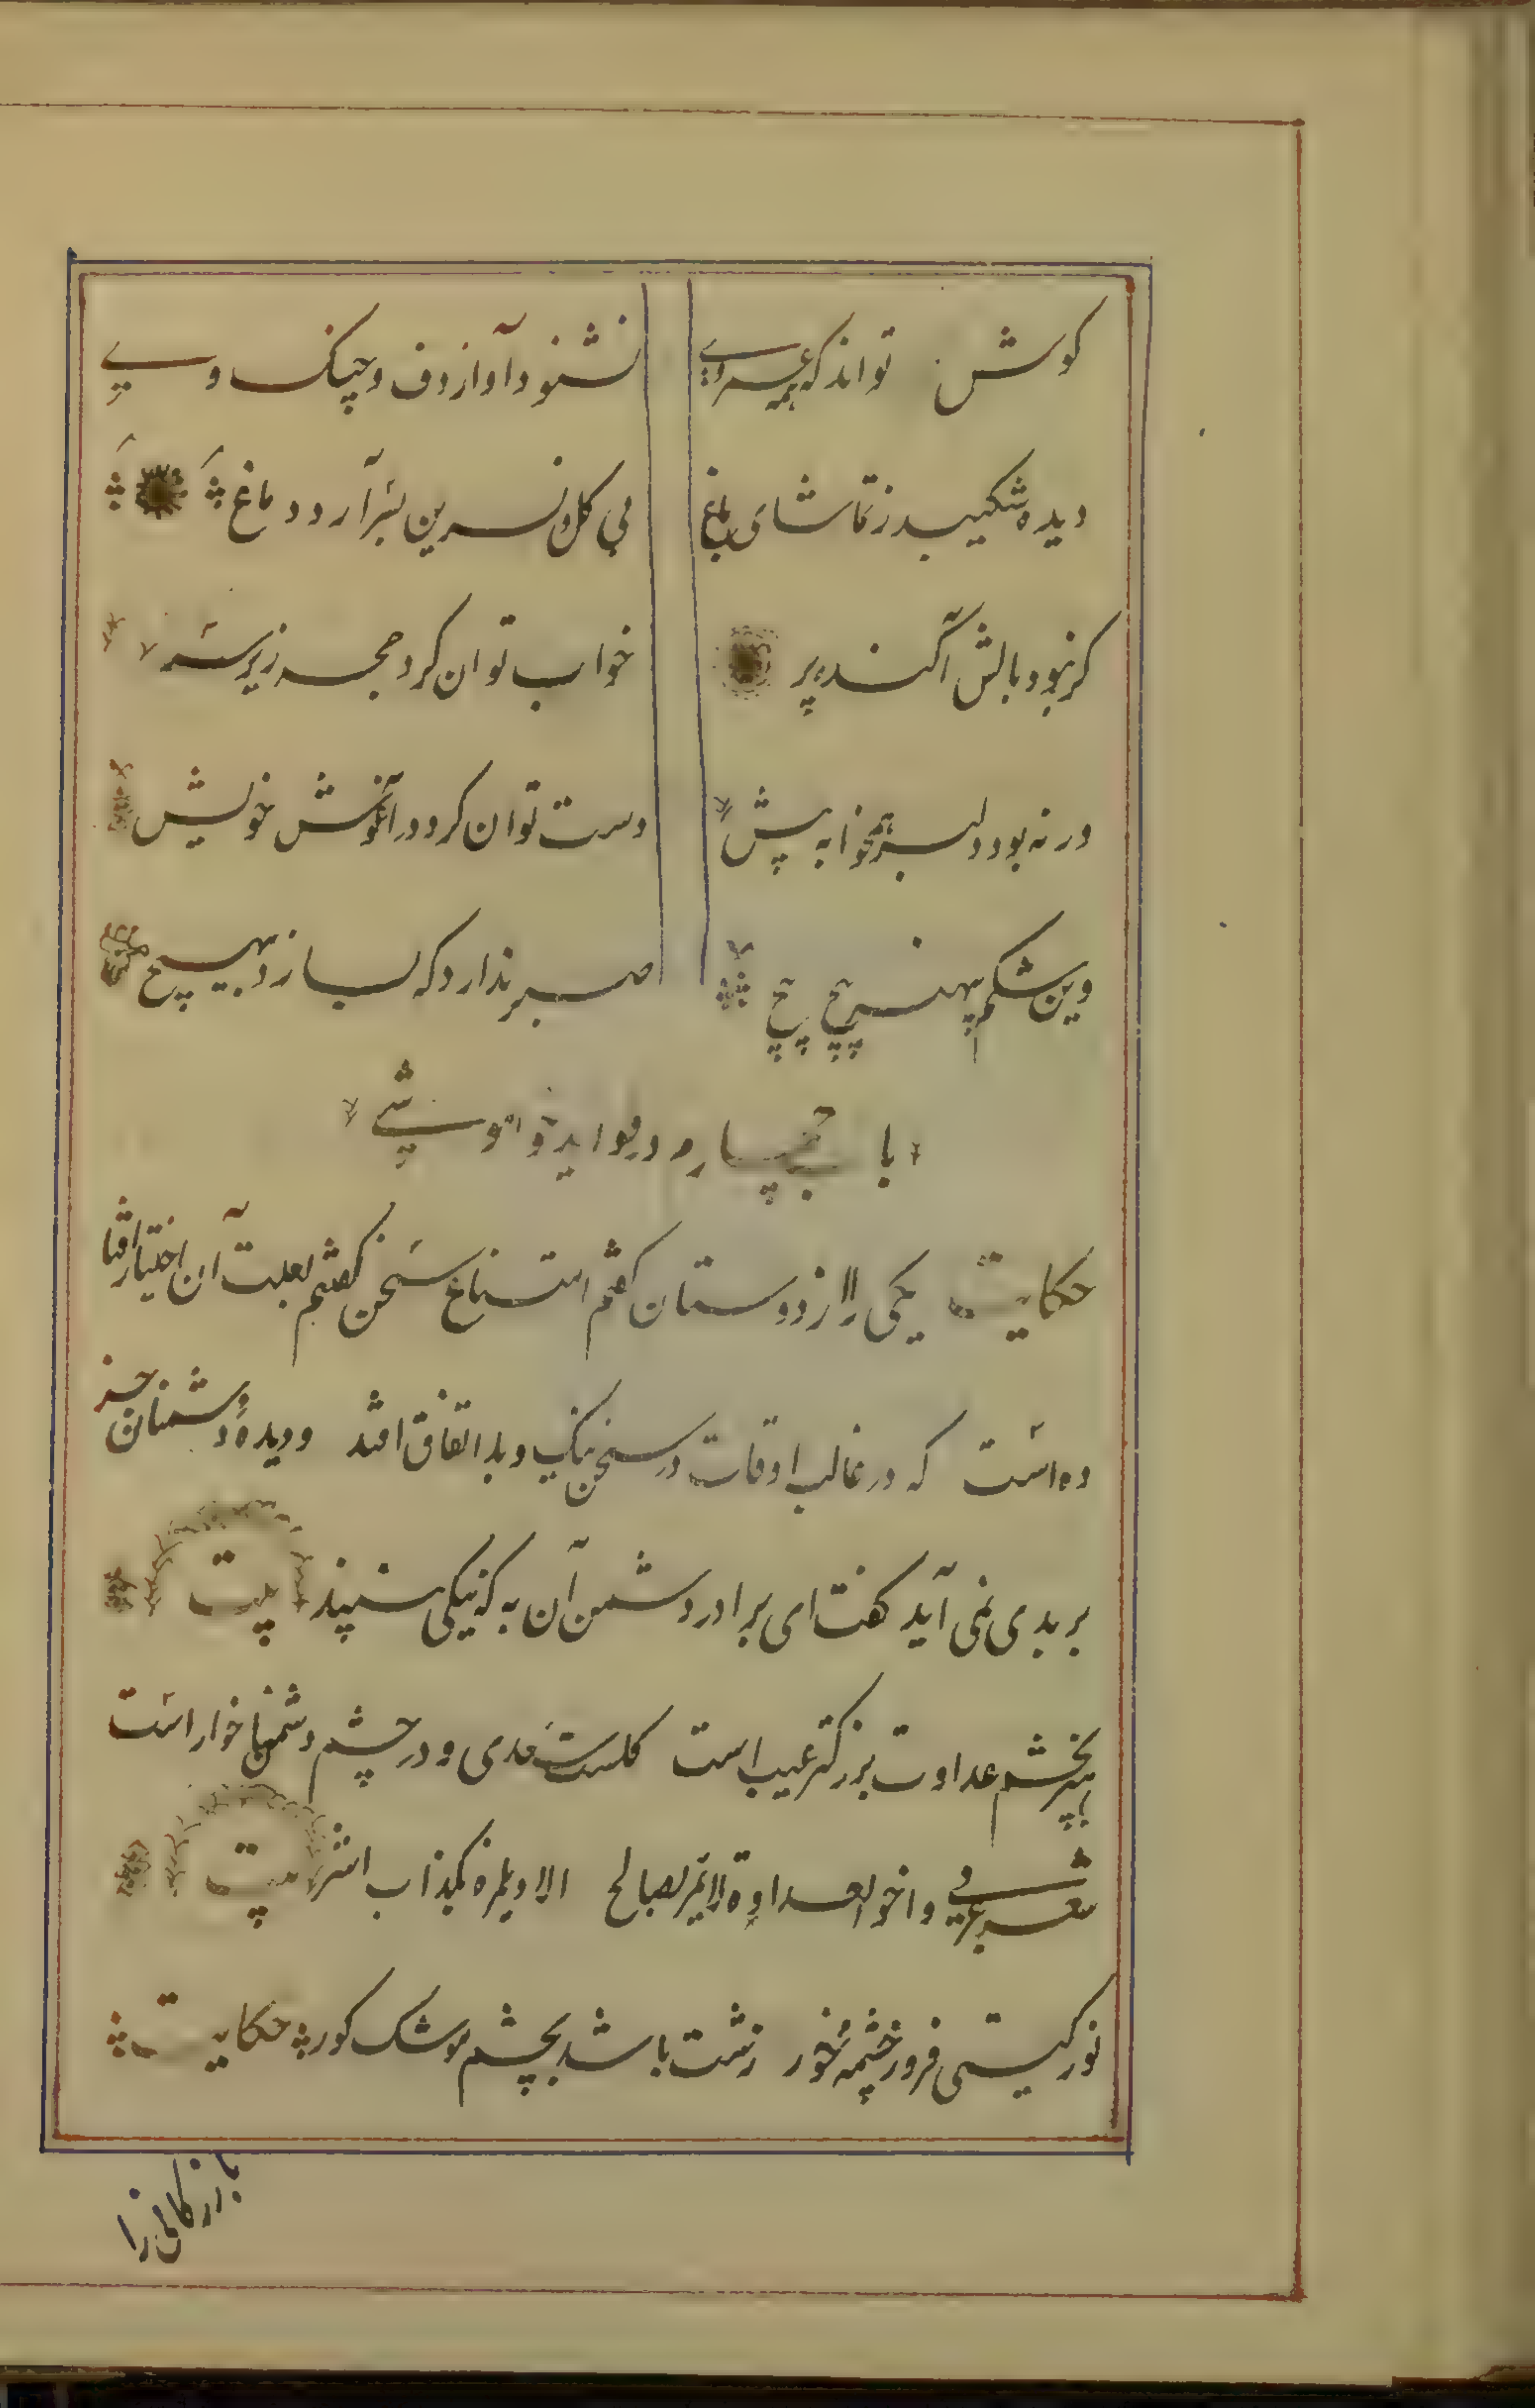 کوش تواند که همه عمر وی نشنود آواز دف و چنک و نی
دیده شکیبد ز تماشای باغ بی کل و نسرین بسر آرد دماغ
کر نبود بالش آکنده پر خواب توان کرد حجر زیر سر
ور نه بود دلبر همخوابه پیش دست توان کرد در آغوش خویش
وین شکم بی هنر پیچ پیچ صبر ندارد که بسازد بهیچ
باب چهارم در فواید خاموشی
حکایت یکی را از دوستان کفتم امتناع سخن کفتنم بعلت آن اختیار افتا
ده است که در غالب اوقات در سخن نیک و بد اتفاق افتد و دیدهٔ دشمنان جز
بر بدی نمی آید کفت ای برادر دشمن آن به که نیکی نبیند بیت
هنر بچشم عداوت بزرکتر عیب است کلست سعدی و در چشم دشمنان خار است
شعر عربی و اخو العداوة لا یمر بصالح الا و یلمزه بکذاب اشر بیت
نور کیتی فروز چشمه خور زشت باشد بچشم موشک کور حکایت
بازرکانی را